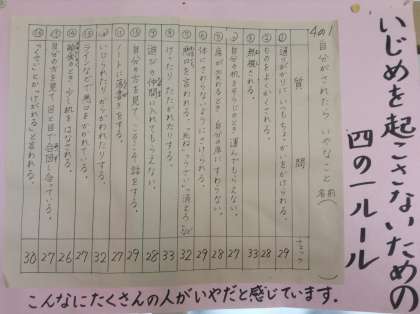 いじめを起こさないための
四の一ルール
4の1 自分がされたらいやなこと 名前( )
質問 チェック
① 通りがかりに いつも ちょっかいをかけられる。 29
② ものをよくかくされる。 28
③ 無視される。 33
④ 自分の机を そうじのとき 運んでもらえない。 27
⑤ 席が変わるとき、自分の席にすわらない。 28
⑥ 体にさわらないように さけられる。 29
⑦ 悪口を言われる。「死ね」「うっさい」「消えろ」など 32
⑧ けったり たたかれたりする。 33
⑨ 遊びの仲間に入れてもらえない。 28
⑩ 自分の方を見て こそこそ話をする。 29
⑪ ノートに落書きをする。 27
⑫ いじられたり からかわれたりする。 32
⑬ ラインなどで悪口をかかれている。 27
⑭ 給食のとき 少し机をはなされる。 26
⑮ 自分の方を見て 目と目で合図し合っている。 27
⑯ 「くさい」とか「けがれる」と言われる。 30
こんなにたくさんの人がいやだと感じています.